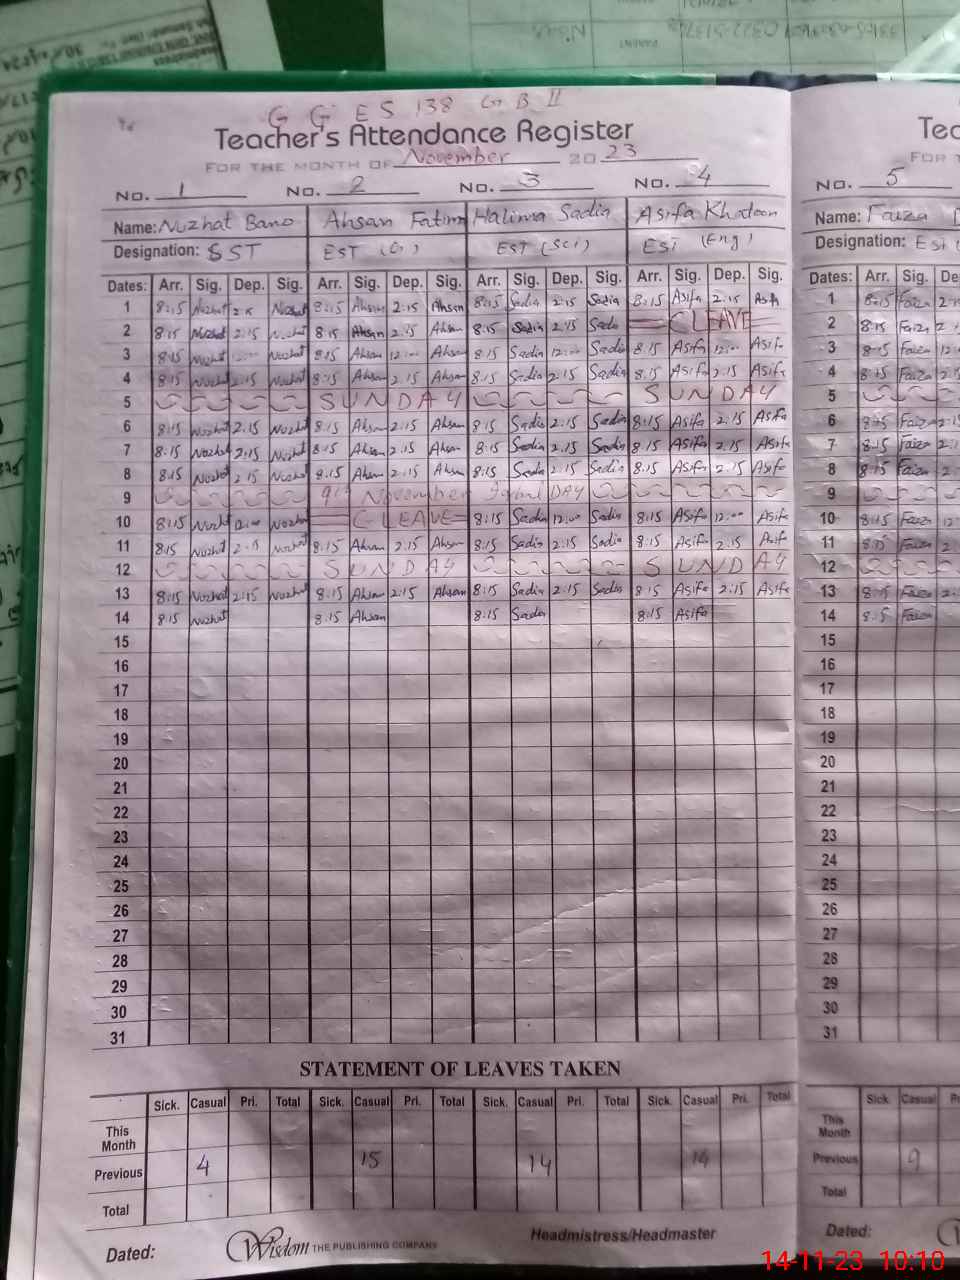 G G E S 138 G B II
Teacher's Attendance Register
FOR THE MONTH OF November 20 23
No. 1 No. 2 No. 3 No. 4
Name: Nuzhat Bano Ahsan Fatima Halima Sadia Asifa Khatoon
Designation: SST EST (G) EST (Sci) EST (Eng)
Dates: Arr. Sig. Dep. Sig. Arr. Sig. Dep. Sig. Arr. Sig. Dep. Sig. Arr. Sig. Dep. Sig.
1 8:15 Nuzhat 2:15 Nuzhat 8:15 Ahsan 2:15 Ahsan 8:15 Sadia 2:15 Sadia 8:15 Asifa 2:15 Asifa
2 8:15 Nuzhat 2:15 Nuzhat 8:15 Ahsan 2:15 Ahsan 8:15 Sadia 2:15 Sadia C LEAVE
3 8:15 Nuzhat 12:00 Nuzhat 8:15 Ahsan 12:00 Ahsan 8:15 Sadia 12:00 Sadia 8:15 Asifa 12:00 Asifa
4 8:15 Nuzhat 2:15 Nuzhat 8:15 Ahsan 2:15 Ahsan 8:15 Sadia 2:15 Sadia 8:15 Asifa 2:15 Asifa
5 SUNDAY SUNDAY
6 8:15 Nuzhat 2:15 Nuzhat 8:15 Ahsan 2:15 Ahsan 8:15 Sadia 2:15 Sadia 8:15 Asifa 2:15 Asifa
7 8:15 Nuzhat 2:15 Nuzhat 8:15 Ahsan 2:15 Ahsan 8:15 Sadia 2:15 Sadia 8:15 Asifa 2:15 Asifa
8 8:15 Nuzhat 2:15 Nuzhat 8:15 Ahsan 2:15 Ahsan 8:15 Sadia 2:15 Sadia 8:15 Asifa 2:15 Asifa
9 9th November Iqbal DAY
10 8:15 Nuzhat 12:00 Nuzhat C LEAVE 8:15 Sadia 12:00 Sadia 8:15 Asifa 12:00 Asifa
11 8:15 Nuzhat 2:15 Nuzhat 8:15 Ahsan 2:15 Ahsan 8:15 Sadia 2:15 Sadia 8:15 Asifa 2:15 Asifa
12 SUNDAY SUNDAY
13 8:15 Nuzhat 2:15 Nuzhat 8:15 Ahsan 2:15 Ahsan 8:15 Sadia 2:15 Sadia 8:15 Asifa 2:15 Asifa
14 8:15 Nuzhat 8:15 Ahsan 8:15 Sadia 8:15 Asifa
15
16
17
18
19
20
21
22
23
24
25
26
27
28
29
30
31
STATEMENT OF LEAVES TAKEN
Sick. Casual Pri. Total Sick. Casual Pri. Total Sick. Casual Pri. Total Sick. Casual Pri. Total
This Month
Previous 4 15 14 14
Total
Dated: Wisdom THE PUBLISHING COMPANY Headmistress/Headmaster
No. 5
Name: Faiza
Designation: Est
Dates: Arr. Sig.
1 8:15 Faiza
2 8:15 Faiza
3 8:15 Faiza
4 8:15 Faiza
5
6 8:15 Faiza
7 8:15 Faiza
8 8:15 Faiza
9
10 8:15 Faiza
11 8:15 Faiza
12
13 8:15 Faiza
14 8:15 Faiza
15
16
17
18
19
20
21
22
23
24
25
26
27
28
29
30
31
Sick. Casual
This Month
Previous 9
Total
Dated:
14-11-23 10:10